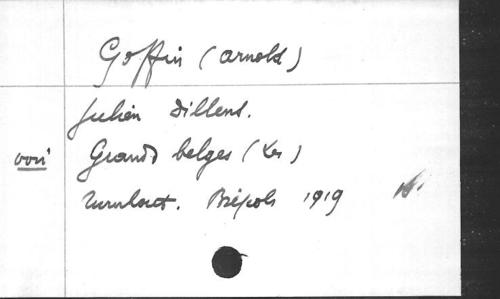 Goffin (Arnold)
Julien Dillens.
voir Grands belges (Les)
Turnhout. Brépols 1919